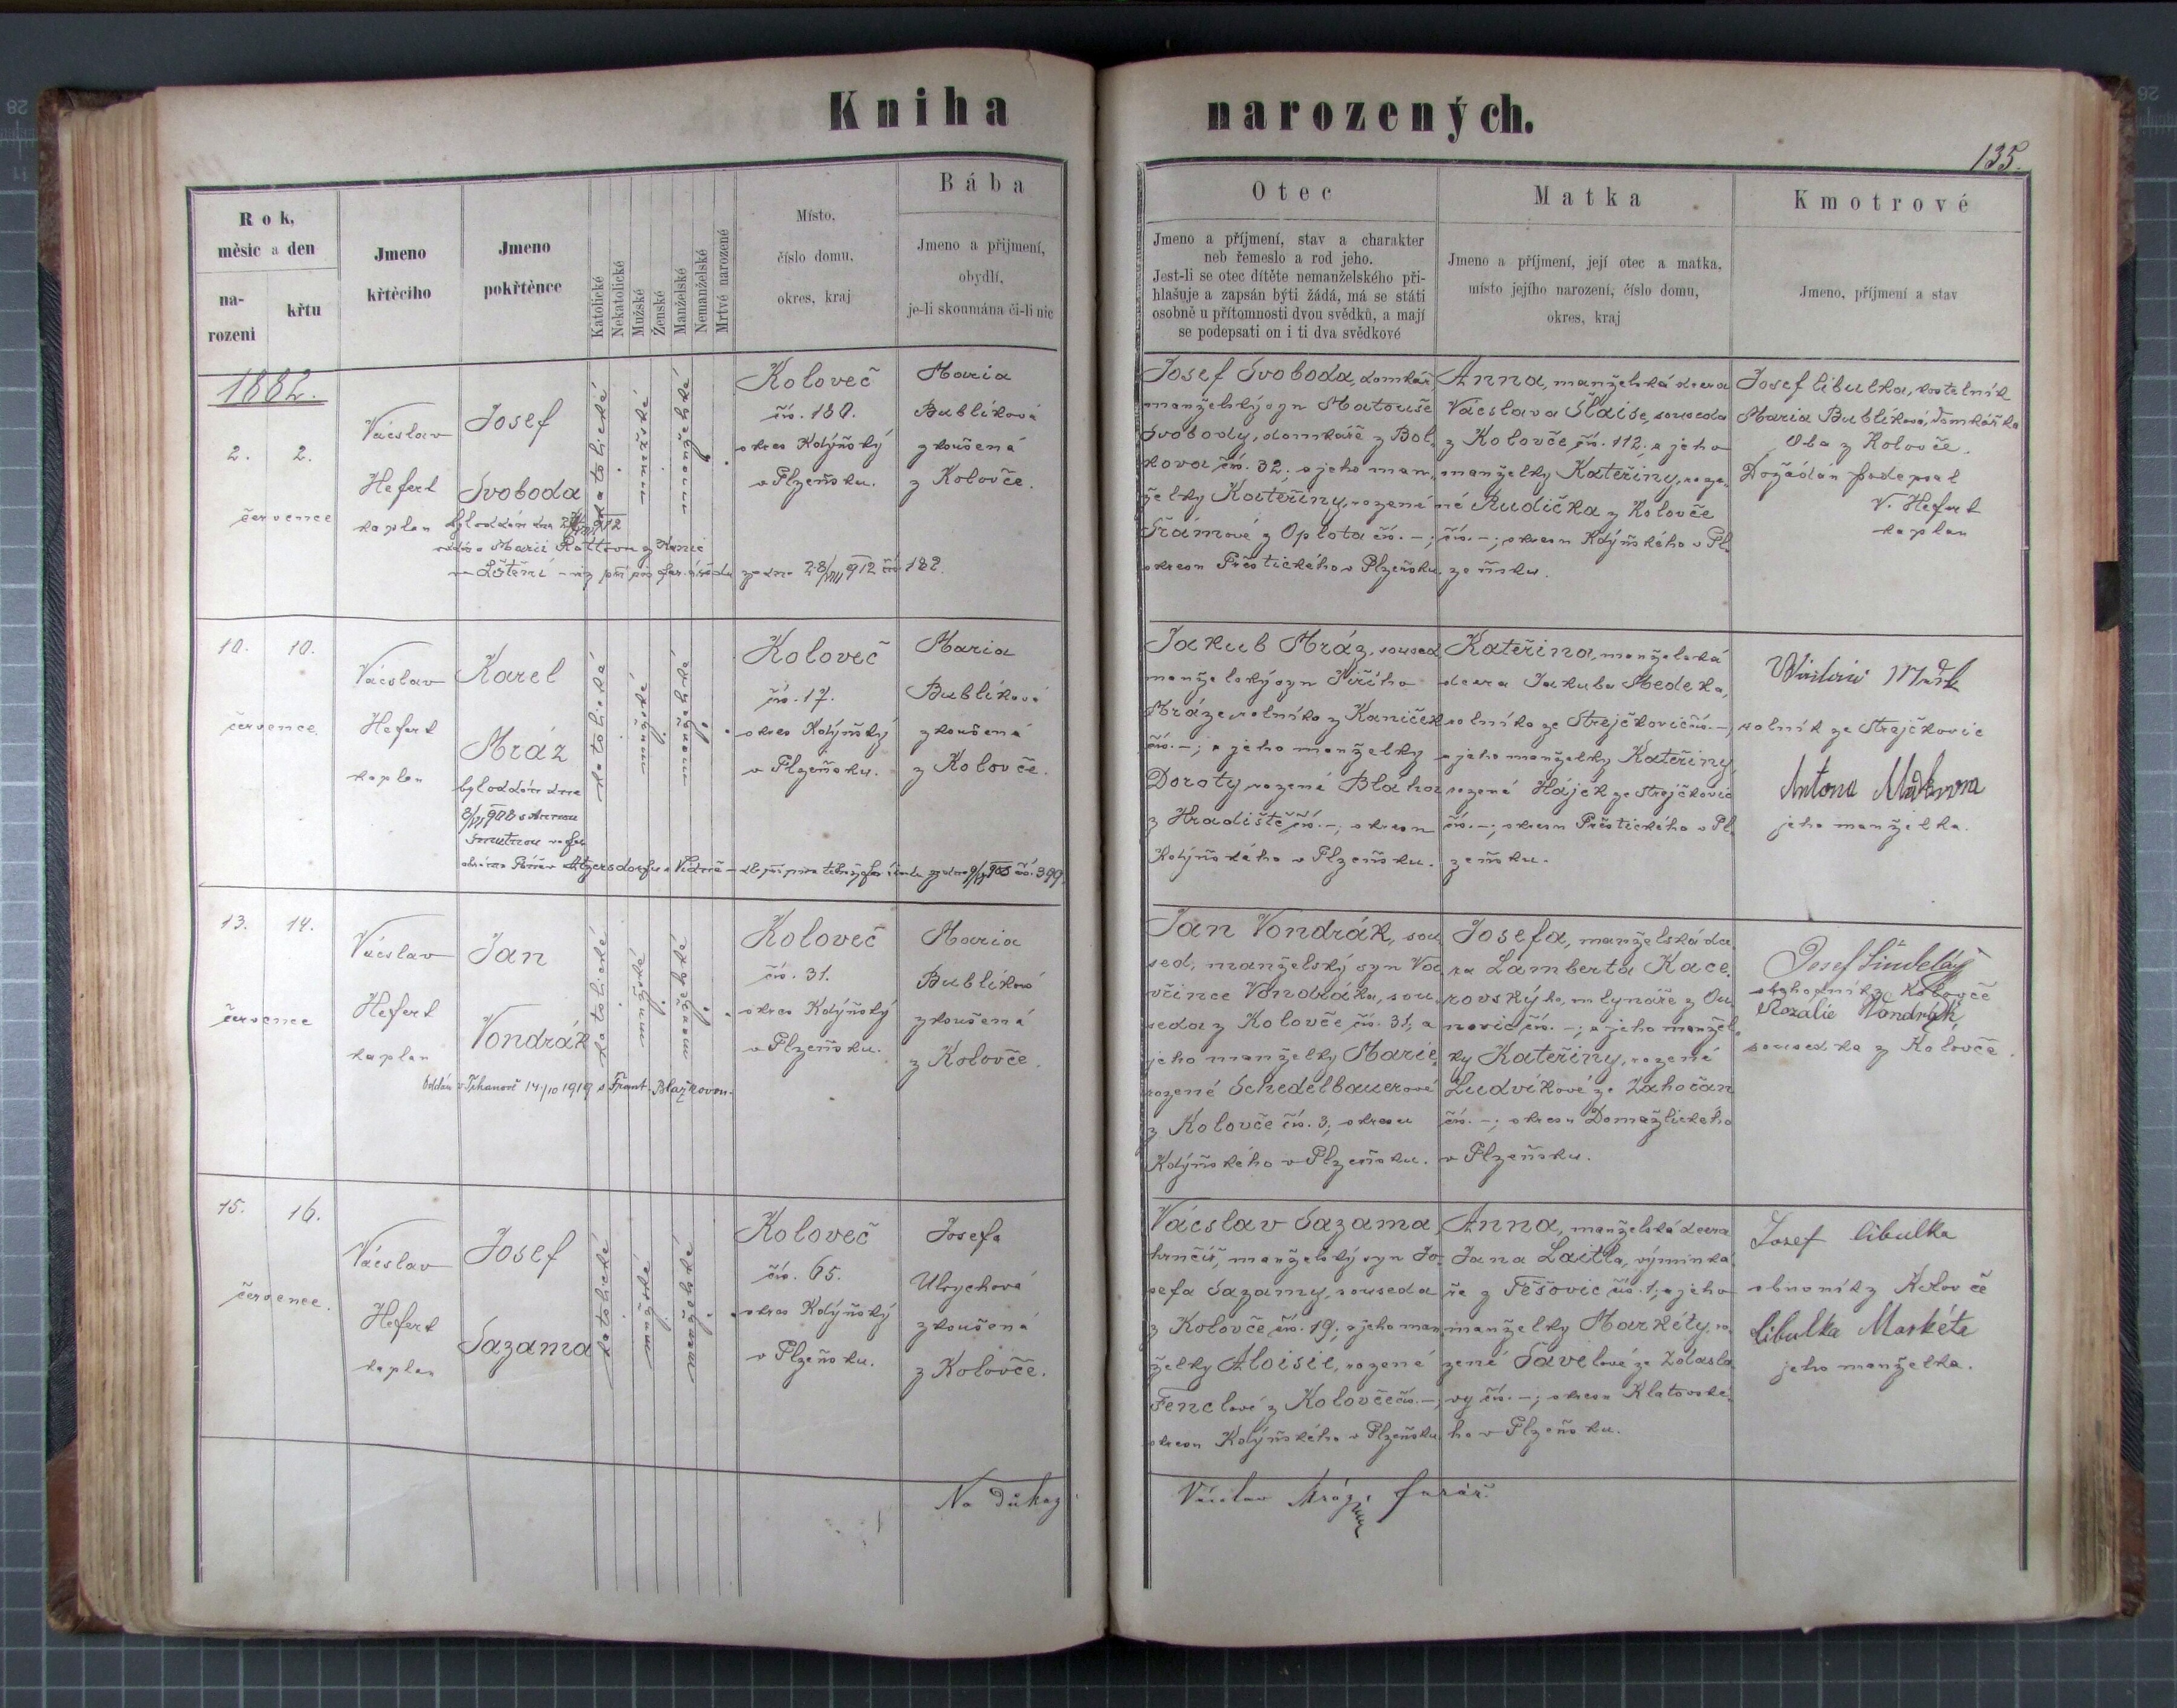 Kniha narozených.
135.
Rok,
měsíc a den
na-
rození
křtu
Jmeno
křtěcího
Jmeno
pokřtěnce
Katolické
Nekatolické
Mužské
Ženské
Manželské
Nemanželské
Mrtvě narozené
Místo,
číslo domu,
okres, kraj
Bába
Jmeno a přijmení,
obydlí,
je-li skoumána či-li nic
Otec
Jmeno a příjmení, stav a charakter
neb řemeslo a rod jeho.
Jest-li se otec dítěte nemanželského při-
hlašuje a zapsán býti žádá, má se státi
osobně u přítomnosti dvou svědků, a mají
se podepsati on i ti dva svědkové
Matka
Jmeno a příjmení, její otec a matka,
místo jejího narození, číslo domu,
okres, kraj
Kmotrové
Jmeno, příjmení a stav
1882.
2. 2.
července
Václav
Hefert
kaplan
Josef
Svoboda
katolické
mužské
manželské
Koloveč
čís. 180.
okres Kdýňský
v Plzeňsku.
Maria
Bublíková
zkoušená
z Kolovče.
Josef Svoboda, domkář
manželský syn Matouše
Svobody, domkáře z Bol-
kova čís. 32; a jeho man-
želky Kateřiny, rozené
z Oplota čís. –;
okresu Přeštického v Plzeňsku
Anna, manželská dcera
Václava, souseda
z Kolovče čís. 112; a jeho
manželky Kateřiny, roze-
né Rudička z Kolovče
čís. –; okresu Kdýňského v Pl-
zeňsku.
Josef Cibulka, kostelník
Maria Bublíková, domkářka
Oba z Kolovče.
Dožádán podepsal
V. Hefert
kaplan
10. 10.
července.
Václav
Hefert
kaplan
Karel
Mráz
byl oddán dne
katolické
mužské
manželské
Koloveč
čís. 17.
okres Kdýňský
v Plzeňsku.
Maria
Bublíková
zkoušená
z Kolovče.
Jakub Mráz, soused
manželský syn Jiřího
Mráze rolníka z Kaniček
čís. –; a jeho manželky
Doroty, rozené Bláha
z Hradiště čís. –; okresu
Kdýňského v Plzeňsku.
Kateřina, manželská
dcera Jakuba Medeka,
rolníka ze Strejčkovic čís. –;
a jeho manželky Kateřiny
rozené Hájek ze Strejčkovic
čís. –; okresu Přeštického v Pl-
zeňsku.
rolník ze Strejčkovic
jeho manželka.
13. 14.
července
Václav
Hefert
kaplan
Jan
Vondrák
14/10 1919 s Frant. Blažkovou.
katolické
mužské
manželské
Koloveč
čís. 31.
okres Kdýňský
v Plzeňsku.
Maria
Bublíková
zkoušená
z Kolovče.
Jan Vondrák, sou-
sed, manželský syn Va-
vřince Vondráka, sou-
seda z Kolovče čís. 31; a
jeho manželky Marie,
rozené Schedelbauerové
z Kolovče čís. 3; okresu
Kdýňského v Plzeňsku.
Josefa, manželská dce-
ra Lamberta Kace-
rovského, mlynáře z Ou-
čís. –; a jeho manžel-
ky Kateřiny, rozené
Ludvíkové ze Zahočan
čís. –; okresu Domažlického
v Plzeňsku.
Josef Šindelář
obchodník z Kolovče
Rozálie Vondrák
sousedka z Kolovče.
15. 16.
července.
Václav
Hefert
kaplan
Josef
Sazama
katolické
mužské
manželské
Koloveč
čís. 65.
okres Kdýňský
v Plzeňsku.
Josefa
Ulrychová
zkoušená
z Kolovče.
Václav Sazama,
hrnčíř, manželský syn Jo-
sefa Sazamy, souseda
z Kolovče čís. 19; a jeho man-
želky Aloisie, rozené
Fenclové z Kolovče čís. –;
okresu Kdýňského v Plzeňsku
Anna, manželská dcera
Jana Laitla, výminká-
ře z Těšovic čís. 1; a jeho
manželky Markéty, ro-
zené Savelové ze Zdasla-
vy čís. –; okresu Klatovské-
ho v Plzeňsku.
Josef Cibulka
z Kolovče
Cibulka Markéta
jeho manželka.
Na důkaz
Václav Mráz, farář.